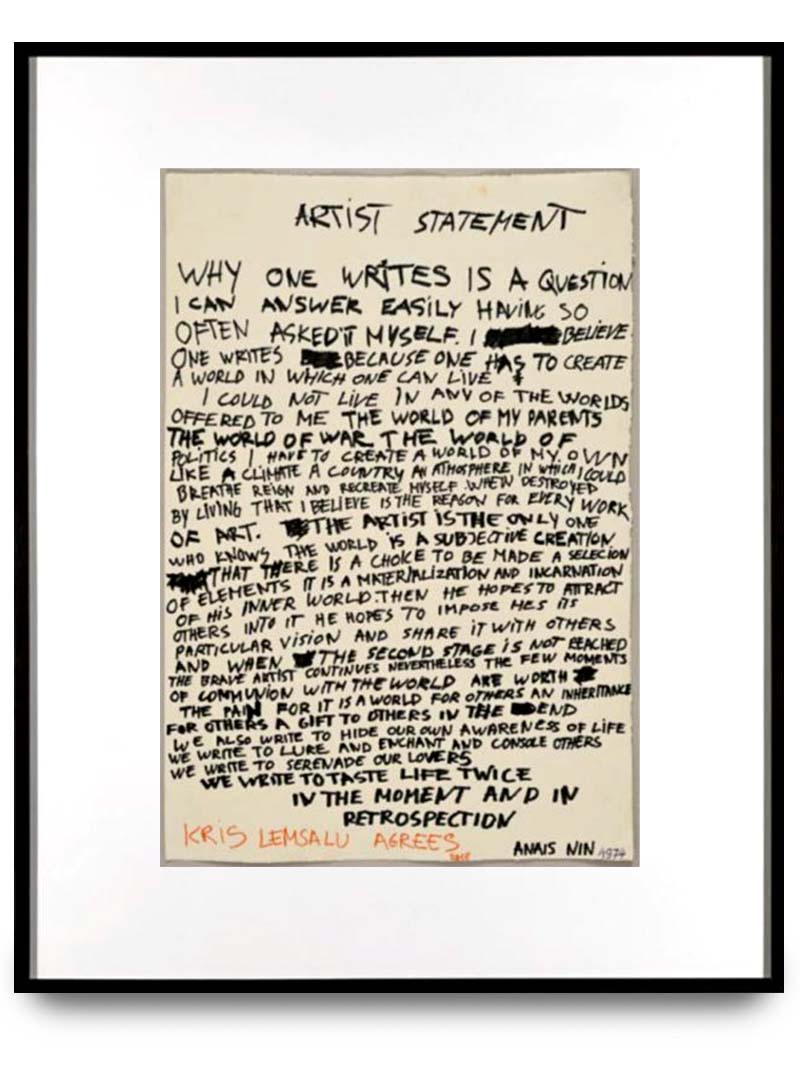 ARTIST STATEMENT
WHY ONE WRITES IS A QUESTION
I CAN ANSWER EASILY HAVING SO
OFTEN ASKED IT MYSELF. I BELIEVE
ONE WRITES BECAUSE ONE HAS TO CREATE
A WORLD IN WHICH ONE CAN LIVE
I COULD NOT LIVE IN ANY OF THE WORLDS
OFFERED TO ME THE WORLD OF MY PARENTS
THE WORLD OF WAR THE WORLD OF
POLITICS I HAVE TO CREATE A WORLD OF MY OWN
LIKE A CLIMATE A COUNTRY AN ATHOSPHERE IN WHICH I COULD
BREATHE REIGN AND RECREATE MYSELF WHEN DESTROYED
BY LIVING THAT I BELIEVE IS THE REASON FOR EVERY WORK
OF ART. THE ARTIST IS THE ONLY ONE
WHO KNOWS THE WORLD IS A SUBJECTIVE CREATION
THAT THERE IS A CHOICE TO BE MADE A SELECION
OF ELEMENTS IT IS A MATERIALIZATION AND INCARNATION
OF HIS INNER WORLD. THEN HE HOPES TO ATTRACT
OTHERS INTO IT HE HOPES TO IMPOSE HES ITS
PARTICULAR VISION AND SHARE IT WITH OTHERS
AND WHEN THE SECOND STAGE IS NOT REACHED
THE BRAVE ARTIST CONTINUES NEVERTHELESS THE FEW MOMENTS
OF COMMUNION WITH THE WORLD ARE WORTH
THE PAIN FOR IT IS A WORLD FOR OTHERS AN INHERITANCE
FOR OTHERS A GIFT TO OTHERS IN THE END
WE ALSO WRITE TO HIDE OUR OWN AWARENESS OF LIFE
WE WRITE TO LURE AND ENCHANT AND CONSOLE OTHERS
WE WRITE TO SERENADE OUR LOVERS
WE WRITE TO TASTE LIFE TWICE
IN THE MOMENT AND IN
RETROSPECTION
KRIS LEMSALU AGREES
ANAIS NIN 1974